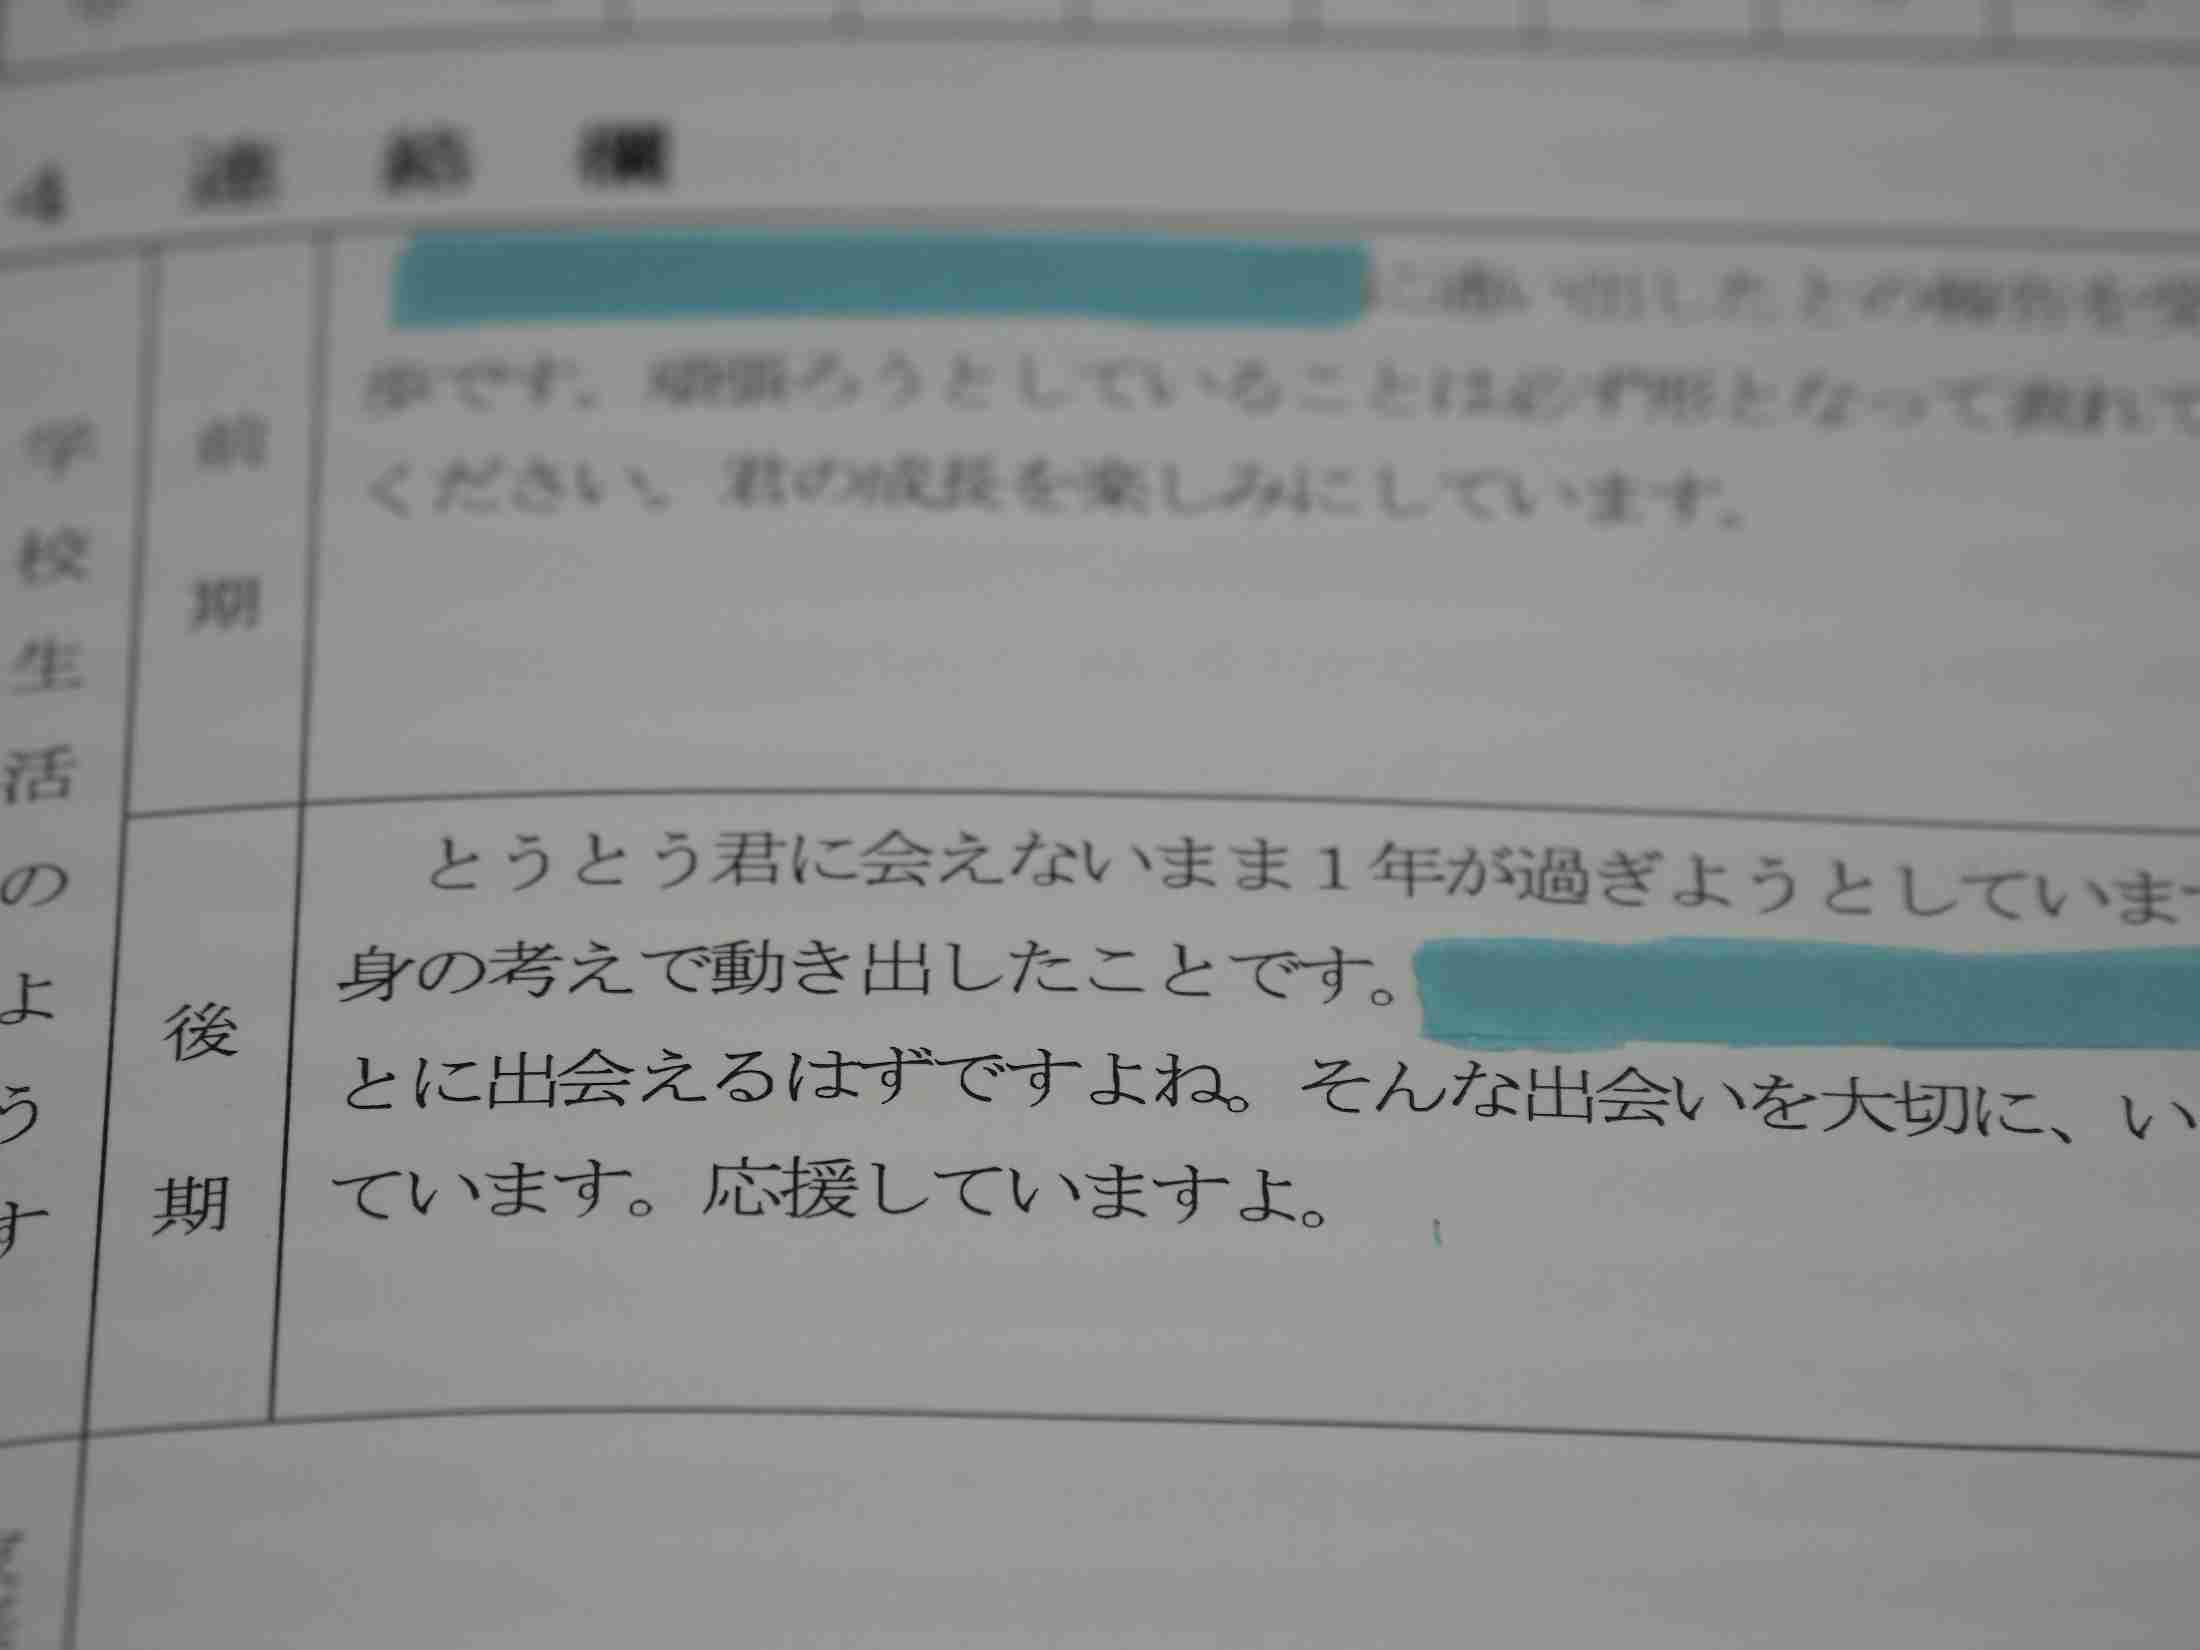 4 連絡欄
学校生活のようす
前期
に通い出したとの報告を受
歩です。頑張ろうとしていることは必ず形となって表れて
ください。君の成長を楽しみにしています。
後期
とうとう君に会えないまま1年が過ぎようとしています
身の考えで動き出したことです。
とに出会えるはずですよね。そんな出会いを大切に、い
ています。応援していますよ。